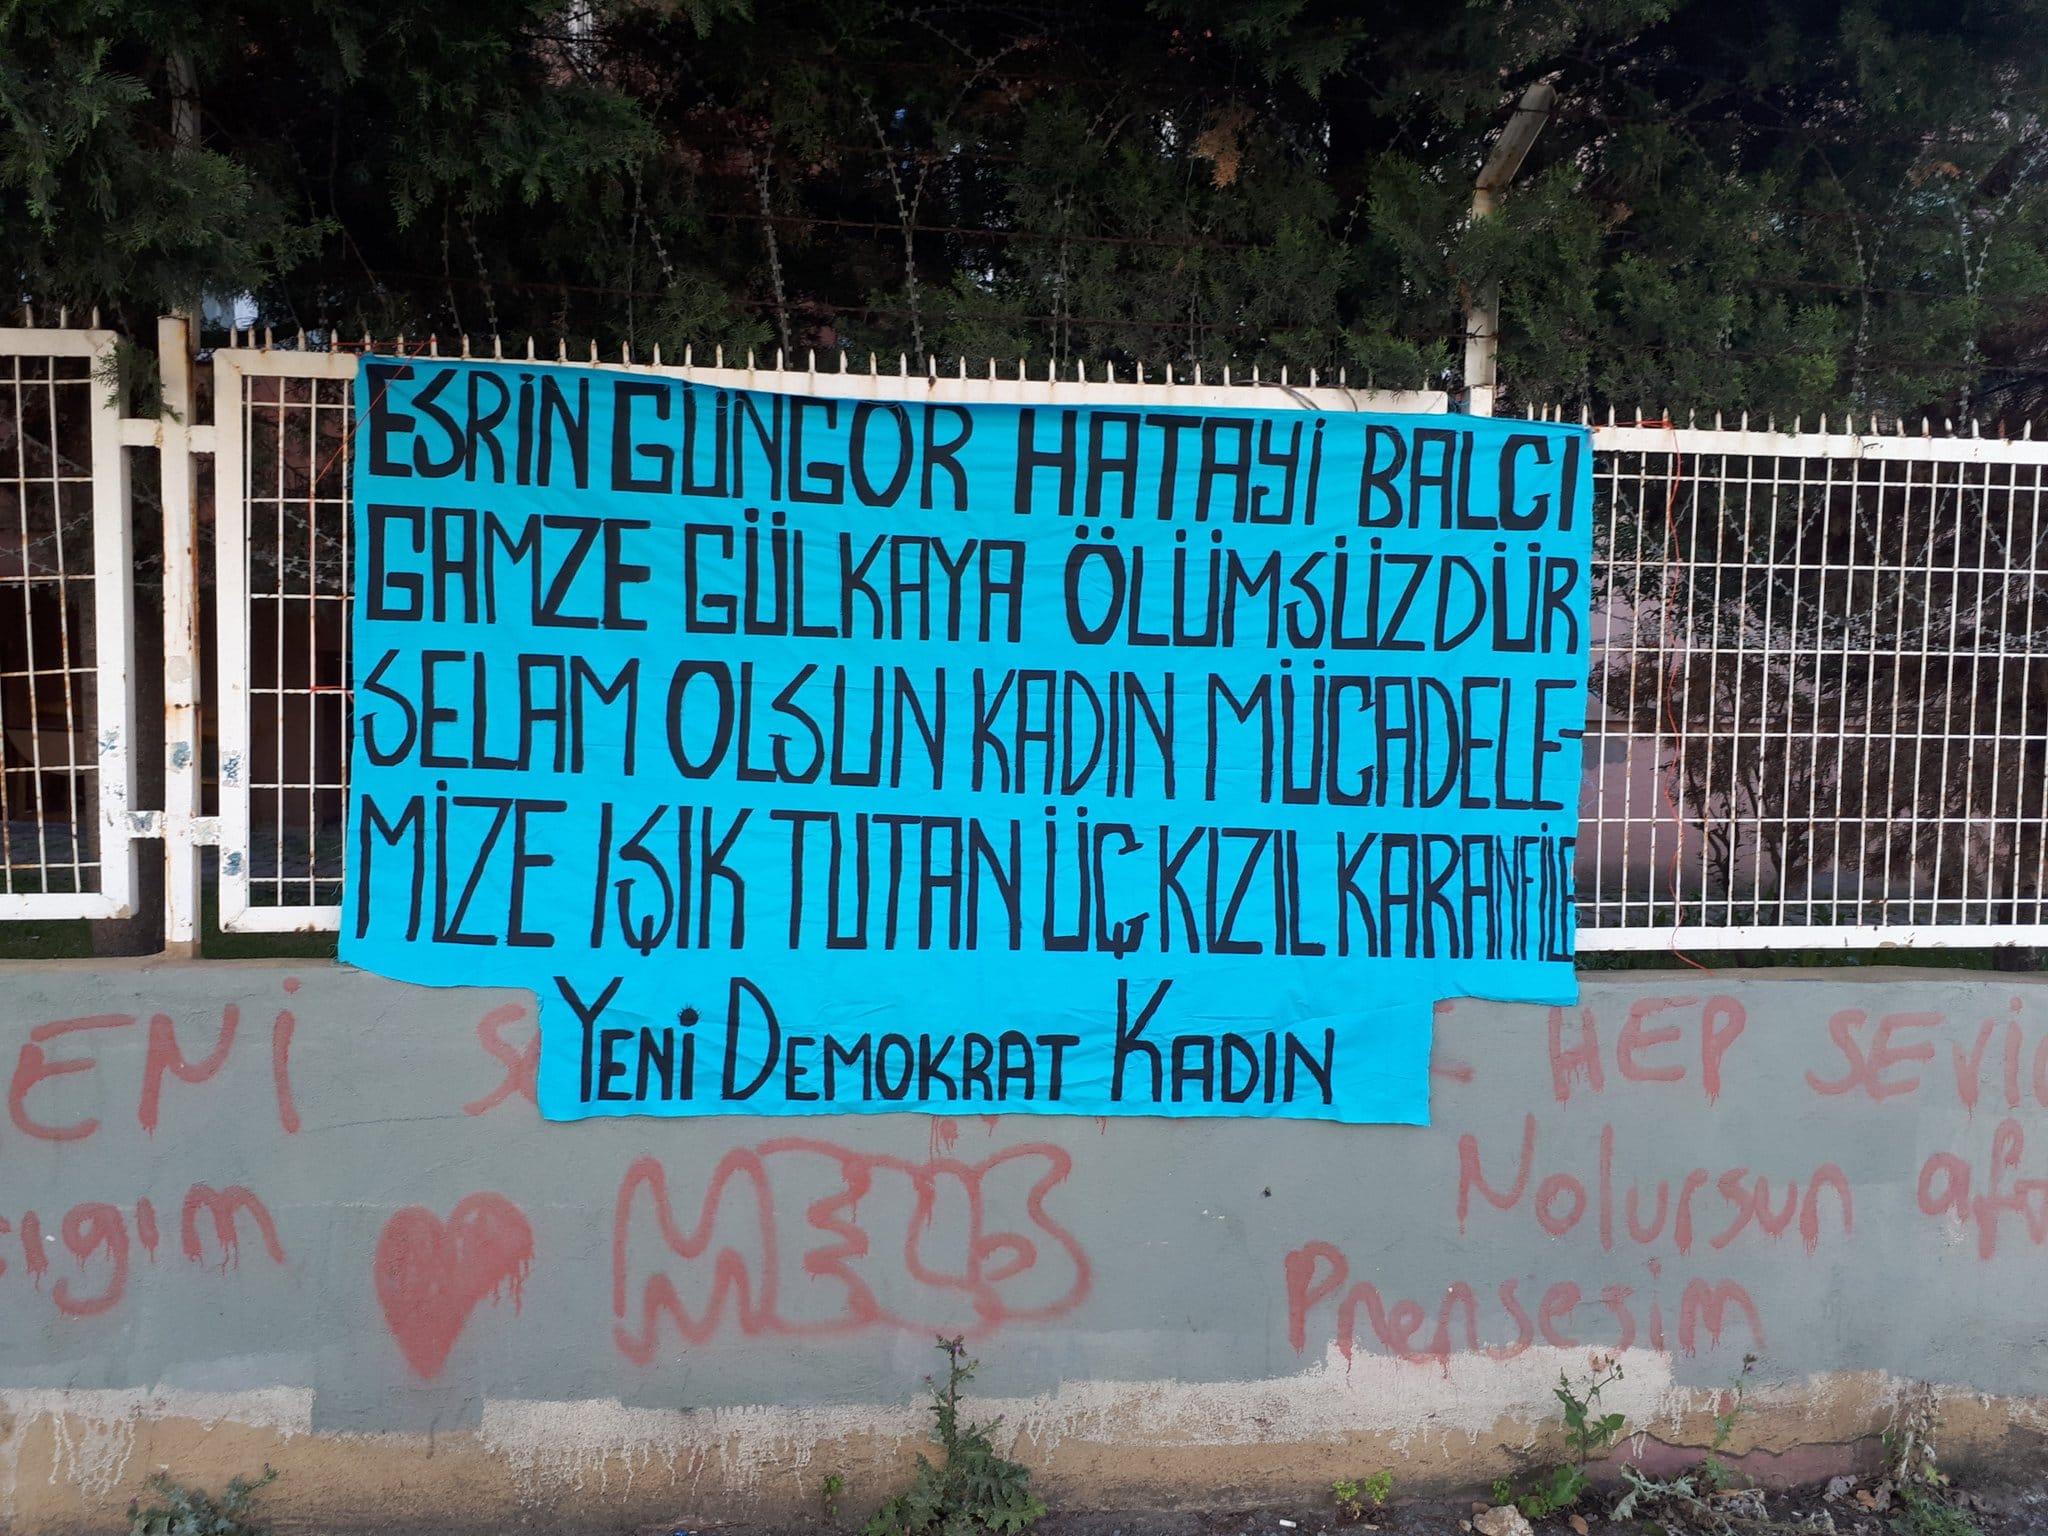 ESRİN GÜNGÖR HATAYİ BALCI
GAMZE GÜLKAYA ÖLÜMSÜZDÜR
SELAM OLSUN KADIN MÜCADELE-
MİZE IŞIK TUTAN ÜÇ KIZIL KARANFİLE
YENİ DEMOKRAT KADIN
HEP
Nolursun
Prensesim